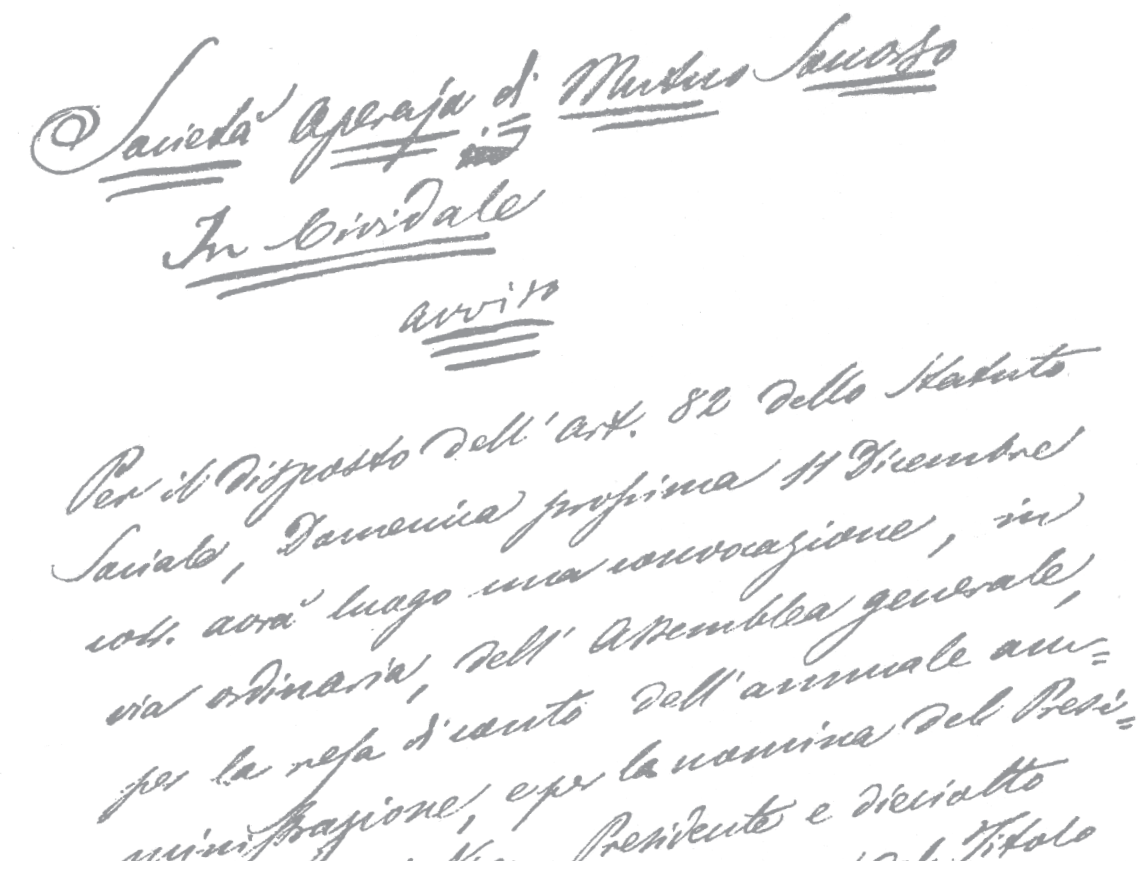 Società Operaja di Mutuo Soccorso
In Cividale
Avviso
Per il disposto dell'art. 82 dello Statuto
Sociale, Domenica prossima 11 Dicembre
corr. avrà luogo una convocazione, in
via ordinaria, dell'Assemblea generale,
per la resa di conto dell'annuale am=
ministrazione, e per la nomina del Presi=
Presidente e dieciotto
del Titolo